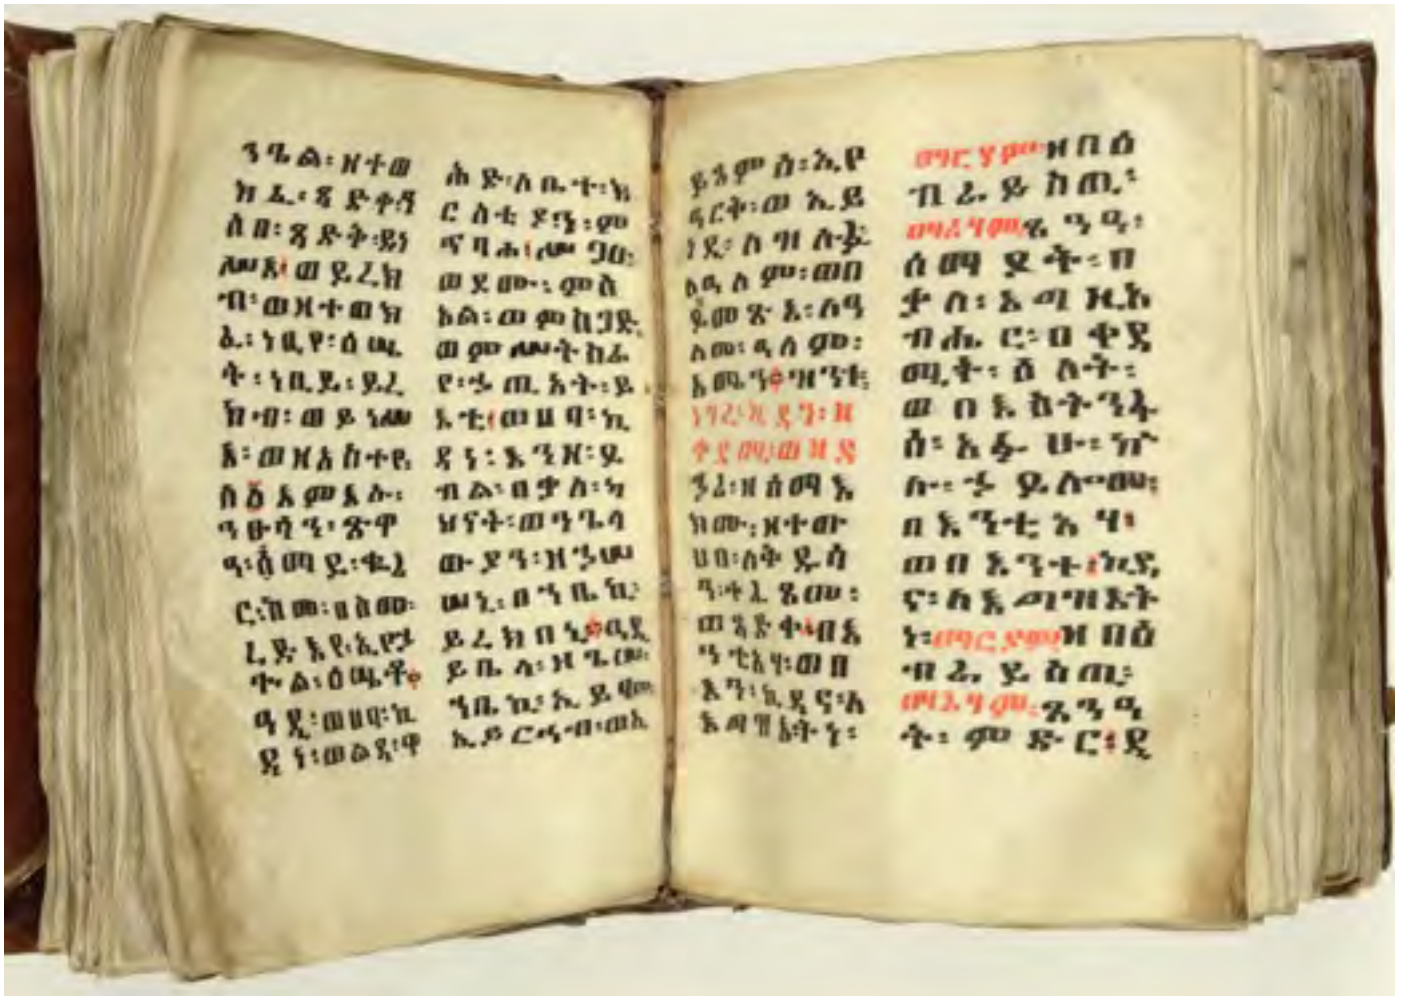 ንጌል፡ዘተወ
ክፈ፡ጻድቀ
ለበ፡ጻድቅ፡ይነ
ሥእ፡ወይረክ
ብ፡ወዘተወክ
ፈ፡ነቢየ፡ዕሤ
ት፡ነቢይ፡ይረ
ክብ፡ወይነሥ
እ፡ወዘአስተየ
ስ፩እምእሉ፡
ንዑሳን፡ጽዋ
ዓ፡፩ማይ፡ቈረ
ር፡ከመ፡ዘስሙ፡
ረድእየ፡ኢየኃ
ጕል፡ዕሤቶ፡
ዓዲ፡ወሀቦ፡ኪ
ዳነ፡ወልዱ፡ዋ
ሕድ፡ለቤተ፡ክ
ርስቲያን፡ም
ጥባሐ፡ሥጋሁ፡
ወደሙ፡ምስ
አል፡ወምስጋድ
ወምሥትስፈ
የ፡ኃጢአት፡ይ
እቲ፡ወሀቦ፡ኪ
ዳነ፡እንዘ፡ይ
ብል፡በቃለ፡ካ
ህናት፡ወንጌላ
ውያን፡ዘኀሠ
ሠኒ፡በኀቤኪ፡
ይረክበኒ፡ዓዲ
ይቤላ፡ዘጌሠ፡
ኀቤኪ፡ኢይፃሙ
ኢይርኅብ፡ወኢ
ይጸምዕ፡ኢየ
ዓርቅ፡ወኢይ
ነዲ፡ለዝሉፉ
ለዓለም፡ወበ
ይመጽእ፡ለዓ
ለመ፡ዓለም፡
አሜን፡ዝንቱ፡
ነገረ፡ኪዳን፡ዘ
ቀደማ፡ወዝደ
ኃሪ፡ዘሰማእ
ክሙ፡ዘተውህ
በ፡ለቅዱሳ
ን፡
ወጻድቃን፡በእ
ንቲአሃ፡ወበ
እን፡ኪዳና፡ለ
እግዝእትነ፡
ማርያም፡ዘበዕ
ብራይስጢ፡
ማሪሃም፡
ሰማያት፡በ
ቃለ፡እግዚአ
ብሔር፡በቀዳ
ሚት፡ዕለት፡
ወበእስትንፋ
ሰ፡አፉሁ፡ኵ
ሉ፡ኃይሎሙ፡
በእንቲአሃ፡
ወበእንተ፡ኪዳ
ና፡ለእግዝእት
ነ፡ማርያም፡ዘበዕ
ብራይስጢ፡
ማሪሃም፡ጼንዓ
ት፡ምድር፡ዲ